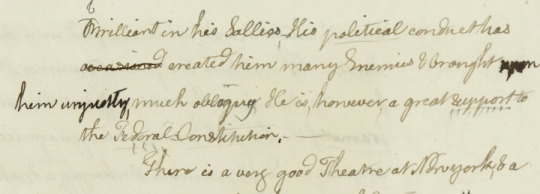 Brilliant in his Sallies, His political conduct has
occasioned created him many Enemies & brought upon
him unjustly much obloquy. He is, however a great support to
the Federal Constitution. —
There is a very good Theatre at New york, & a